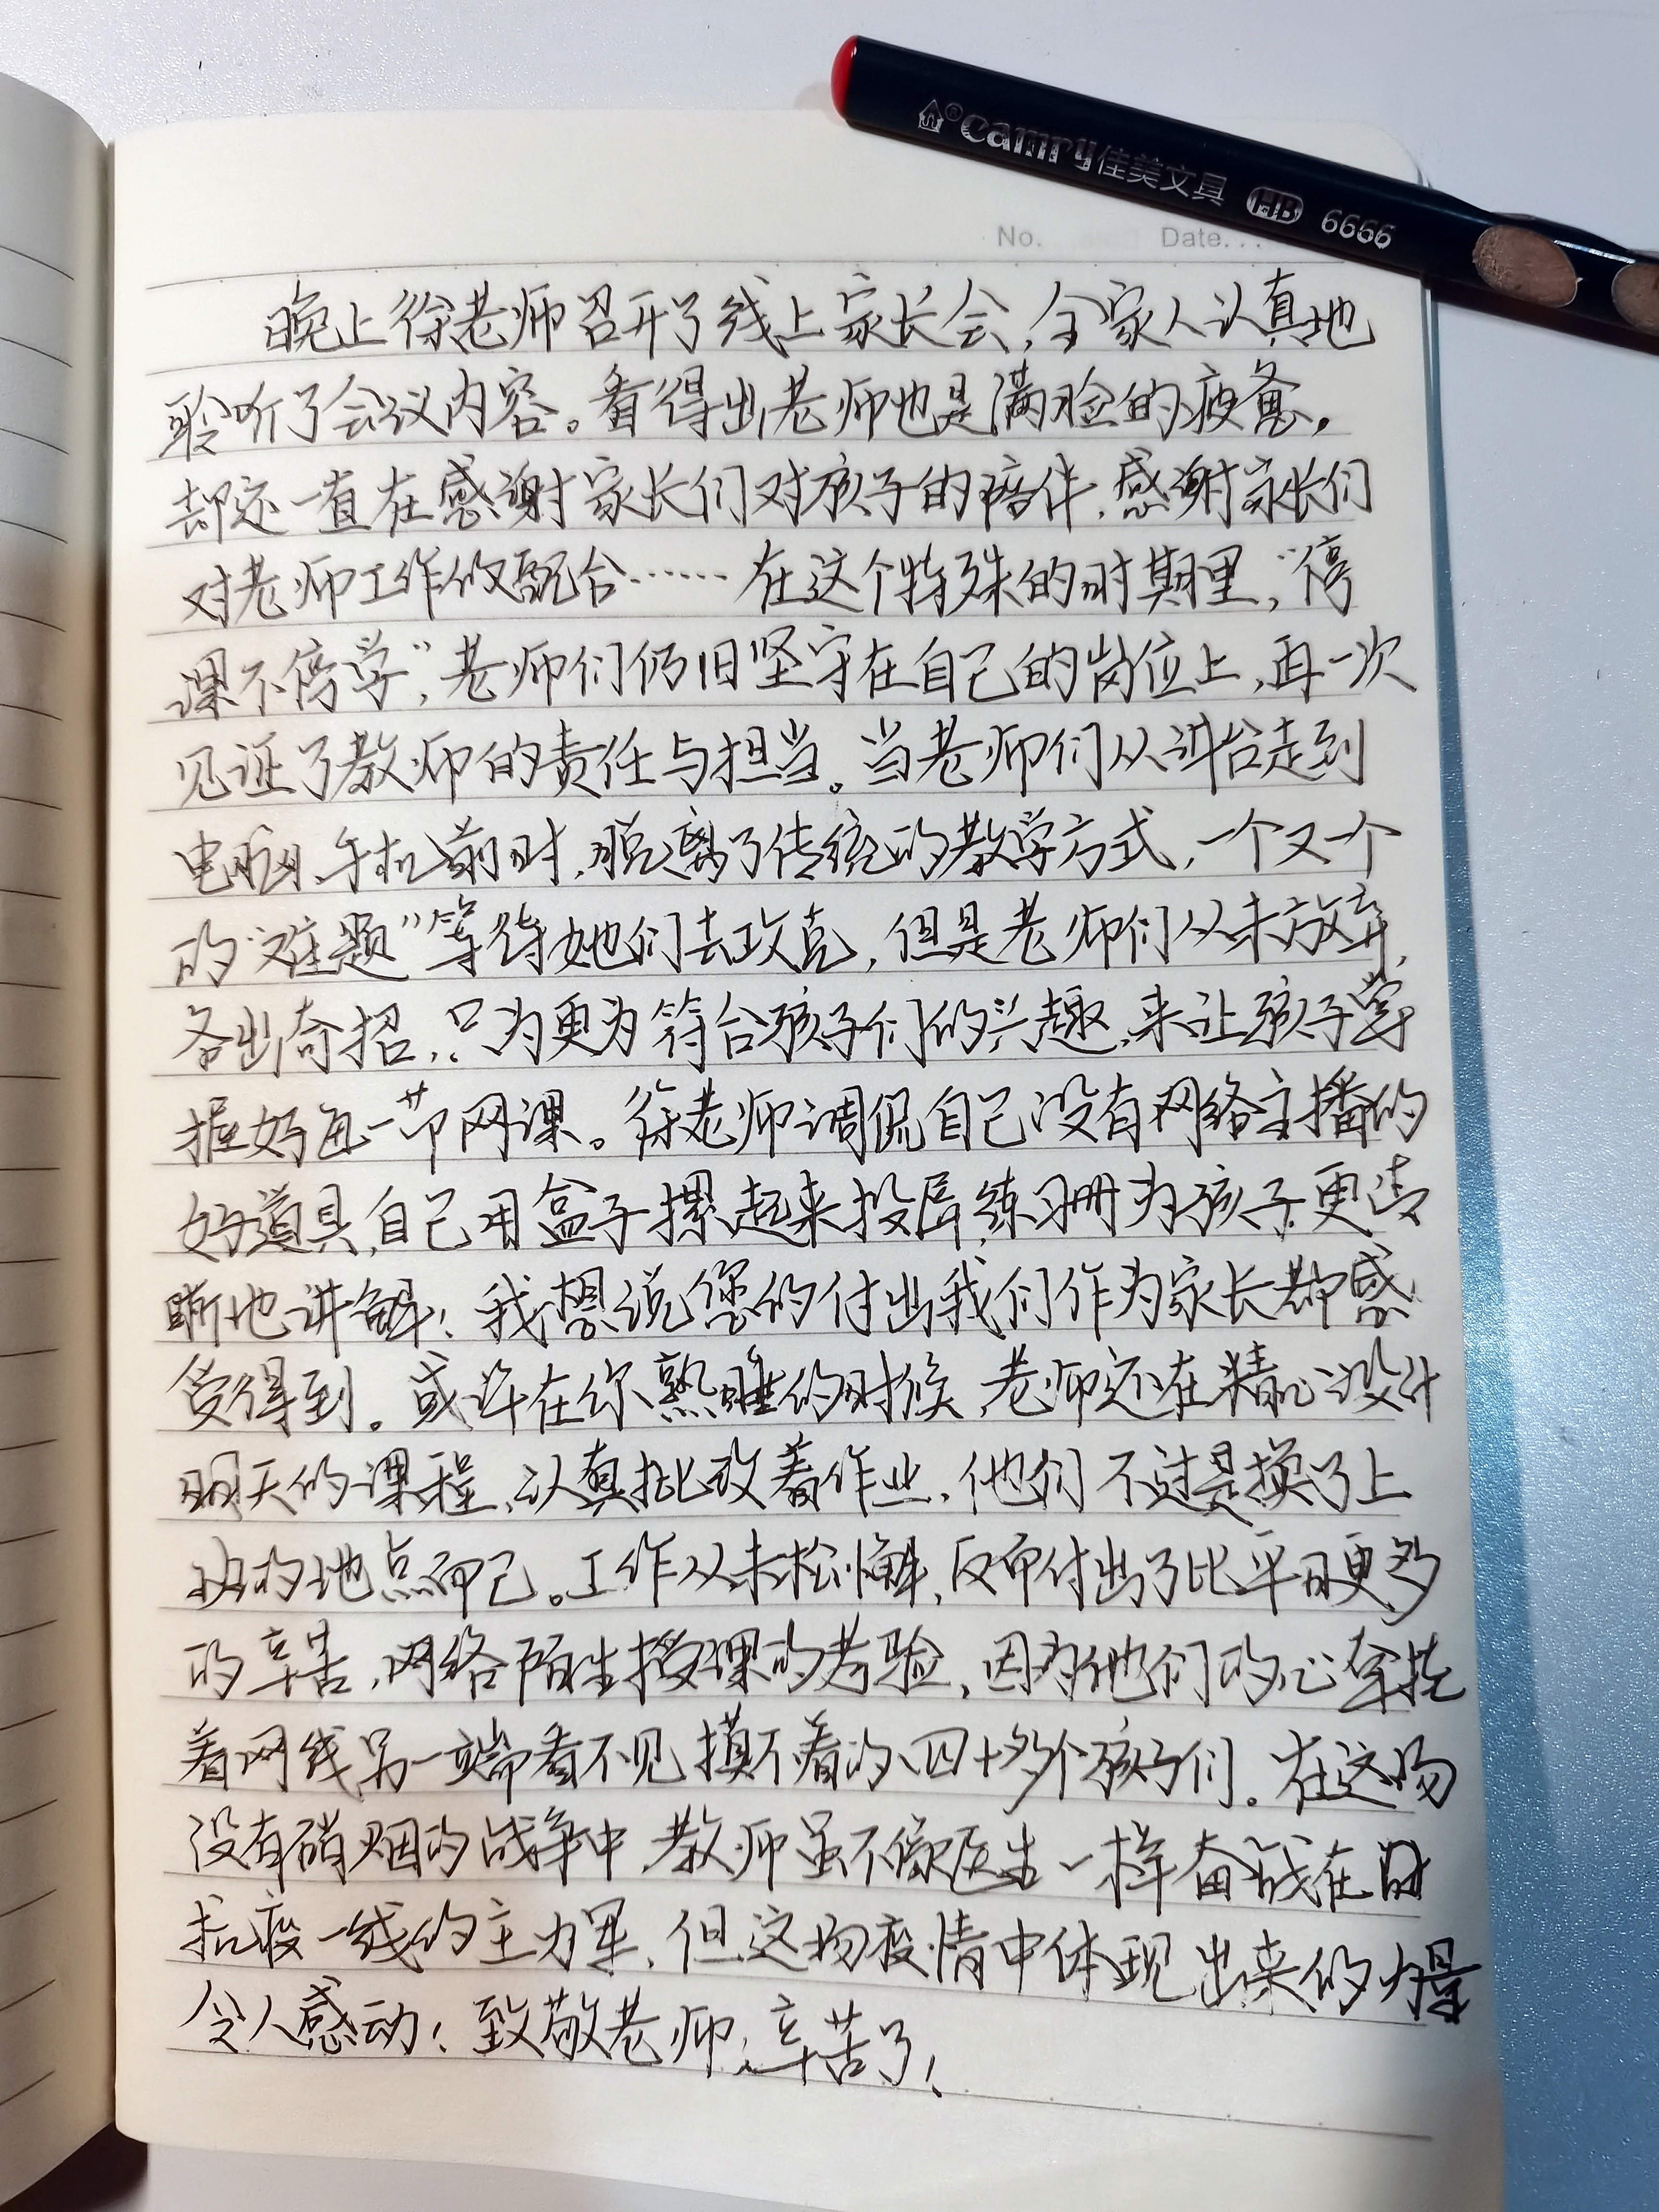 Camry佳美文具 HB 6666
No. Date...
晚上徐老师召开了线上家长会，全家人认真地
聆听了会议内容。看得出老师也是满脸的疲惫，
却还一直在感谢家长们对孩子的陪伴，感谢家长们
对老师工作的配合……在这个特殊的时期里，“停
课不停学”，老师们仍旧坚守在自己的岗位上，再一次
见证了教师的责任与担当。当老师们从讲台走到
电脑、手机前时，脱离了传统的教学方式，一个又一个
的“难题”等待她们去攻克，但是老师们从未放弃，
各出奇招，只为更为符合孩子们的兴趣，来让孩子掌
握好每一节网课。徐老师调侃自己没有网络主播的
好道具，自己用盒子摞起来投屏练习册为孩子更清
晰地讲解！我想说您的付出我们作为家长都感
受得到。或许在你熟睡的时候，老师还在精心设计
明天的课程，认真批改着作业，他们不过是换了上
班的地点而已。工作从未松懈，反而付出了比平日更多
的辛苦，网络陌生授课的考验，因为他们的心牵挂
着网线另一端看不见摸不着的四十多个孩子们。在这场
没有硝烟的战争中，教师虽不像医生一样奋战在
抗疫一线的主力军，但这场疫情中体现出来的力量
令人感动！致敬老师，辛苦了！